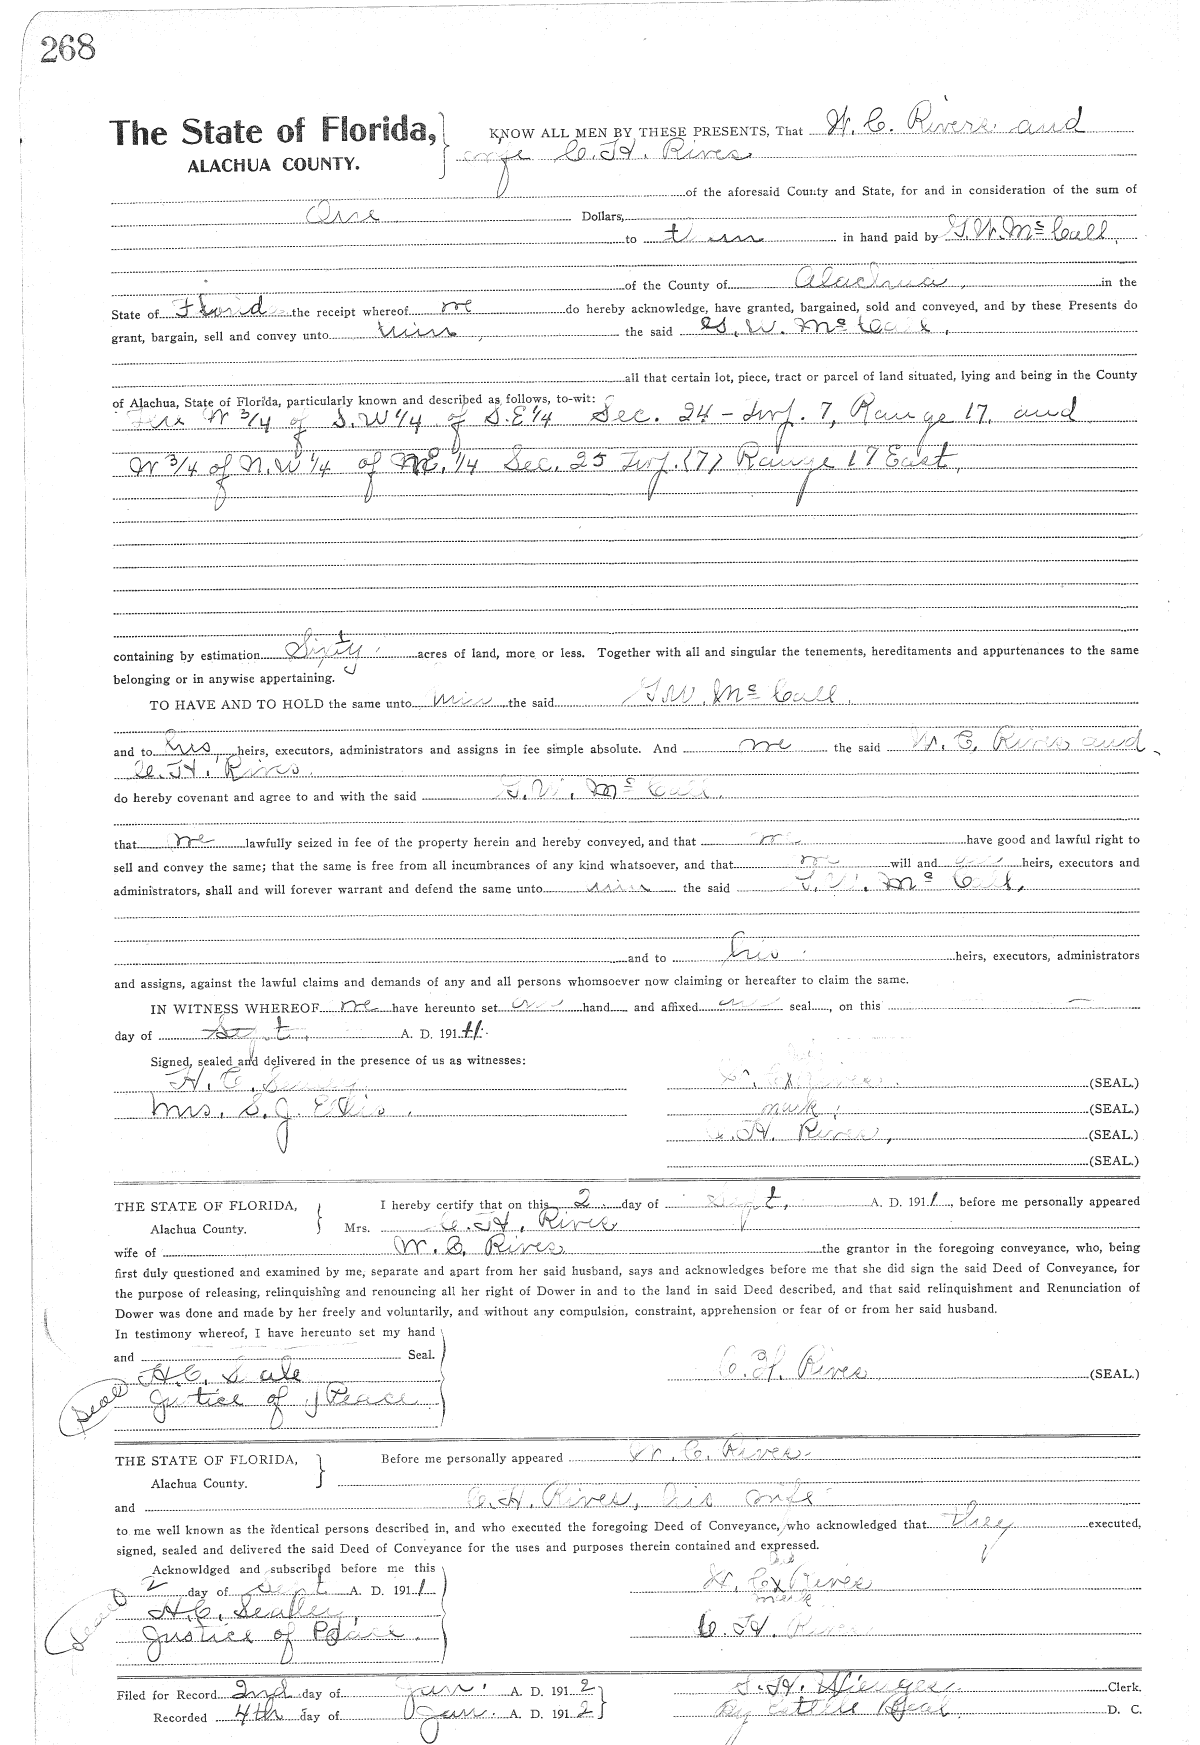 268
The State of Florida, KNOW ALL MEN BY THESE PRESENTS, That W. C. Rivers and
ALACHUA COUNTY. wife C. H. Rives
of the aforesaid County and State, for and in consideration of the sum of
One Dollars,
to them in hand paid by G. W. McCall,
of the County of Alachua, in the
State of Florida the receipt whereof we do hereby acknowledge, have granted, bargained, sold and conveyed, and by these Presents do
grant, bargain, sell and convey unto him, the said G. W. McCall,
all that certain lot, piece, tract or parcel of land situated, lying and being in the County
of Alachua, State of Florida, particularly known and described as follows, to-wit:
The W 3/4 of S.W 1/4 of S.E 1/4 Sec. 24 - Twp. 7, Range 17. and
W 3/4 of N.W 1/4 of N.E. 1/4 Sec. 25 Twp. (7) Range 17 East,
containing by estimation Sixty acres of land, more or less. Together with all and singular the tenements, hereditaments and appurtenances to the same
belonging or in anywise appertaining.
TO HAVE AND TO HOLD the same unto him the said G. W. McCall,
and to his heirs, executors, administrators and assigns in fee simple absolute. And we the said W. C. Rives and
C. H. Rives.
do hereby covenant and agree to and with the said G. W. McCall,
that we lawfully seized in fee of the property herein and hereby conveyed, and that we have good and lawful right to
sell and convey the same; that the same is free from all incumbrances of any kind whatsoever, and that we will and our heirs, executors and
administrators, shall and will forever warrant and defend the same unto him the said G. W. McCall,
and to his heirs, executors, administrators
and assigns, against the lawful claims and demands of any and all persons whomsoever now claiming or hereafter to claim the same.
IN WITNESS WHEREOF we have hereunto set our hand and affixed our seal, on this
day of Sept, A. D. 191
Signed, sealed and delivered in the presence of us as witnesses:
H. C. W. C. x Rives (SEAL.)
Mrs. S. J. Ellis. mark, (SEAL.)
C. H. Rives, (SEAL.)
(SEAL.)
THE STATE OF FLORIDA, I hereby certify that on this 2 day of Sept, A. D. 1911, before me personally appeared
Alachua County. Mrs. C. H. Rives
wife of W. C. Rives the grantor in the foregoing conveyance, who, being
first duly questioned and examined by me, separate and apart from her said husband, says and acknowledges before me that she did sign the said Deed of Conveyance, for
the purpose of releasing, relinquishing and renouncing all her right of Dower in and to the land in said Deed described, and that said relinquishment and Renunciation of
Dower was done and made by her freely and voluntarily, and without any compulsion, constraint, apprehension or fear of or from her said husband.
In testimony whereof, I have hereunto set my hand
and Seal.
H. C. C. H. Rives (SEAL.)
(Seal) Justice of Peace
THE STATE OF FLORIDA, Before me personally appeared W. C. Rives
Alachua County.
and C. H. Rives, his wife
to me well known as the identical persons described in, and who executed the foregoing Deed of Conveyance, who acknowledged that they executed,
signed, sealed and delivered the said Deed of Conveyance for the uses and purposes therein contained and expressed.
Acknowldged and subscribed before me this his
2 day of Sept A. D. 1911 W. C. x Rives
(Seal) H. C. Sealey, mark
Justice of Peace. C. H. Rives
Filed for Record 2nd day of Jan. A. D. 1912 S. H. Wienges Clerk.
Recorded 4th day of Jan. A. D. 1912 By Estelle Beal D. C.